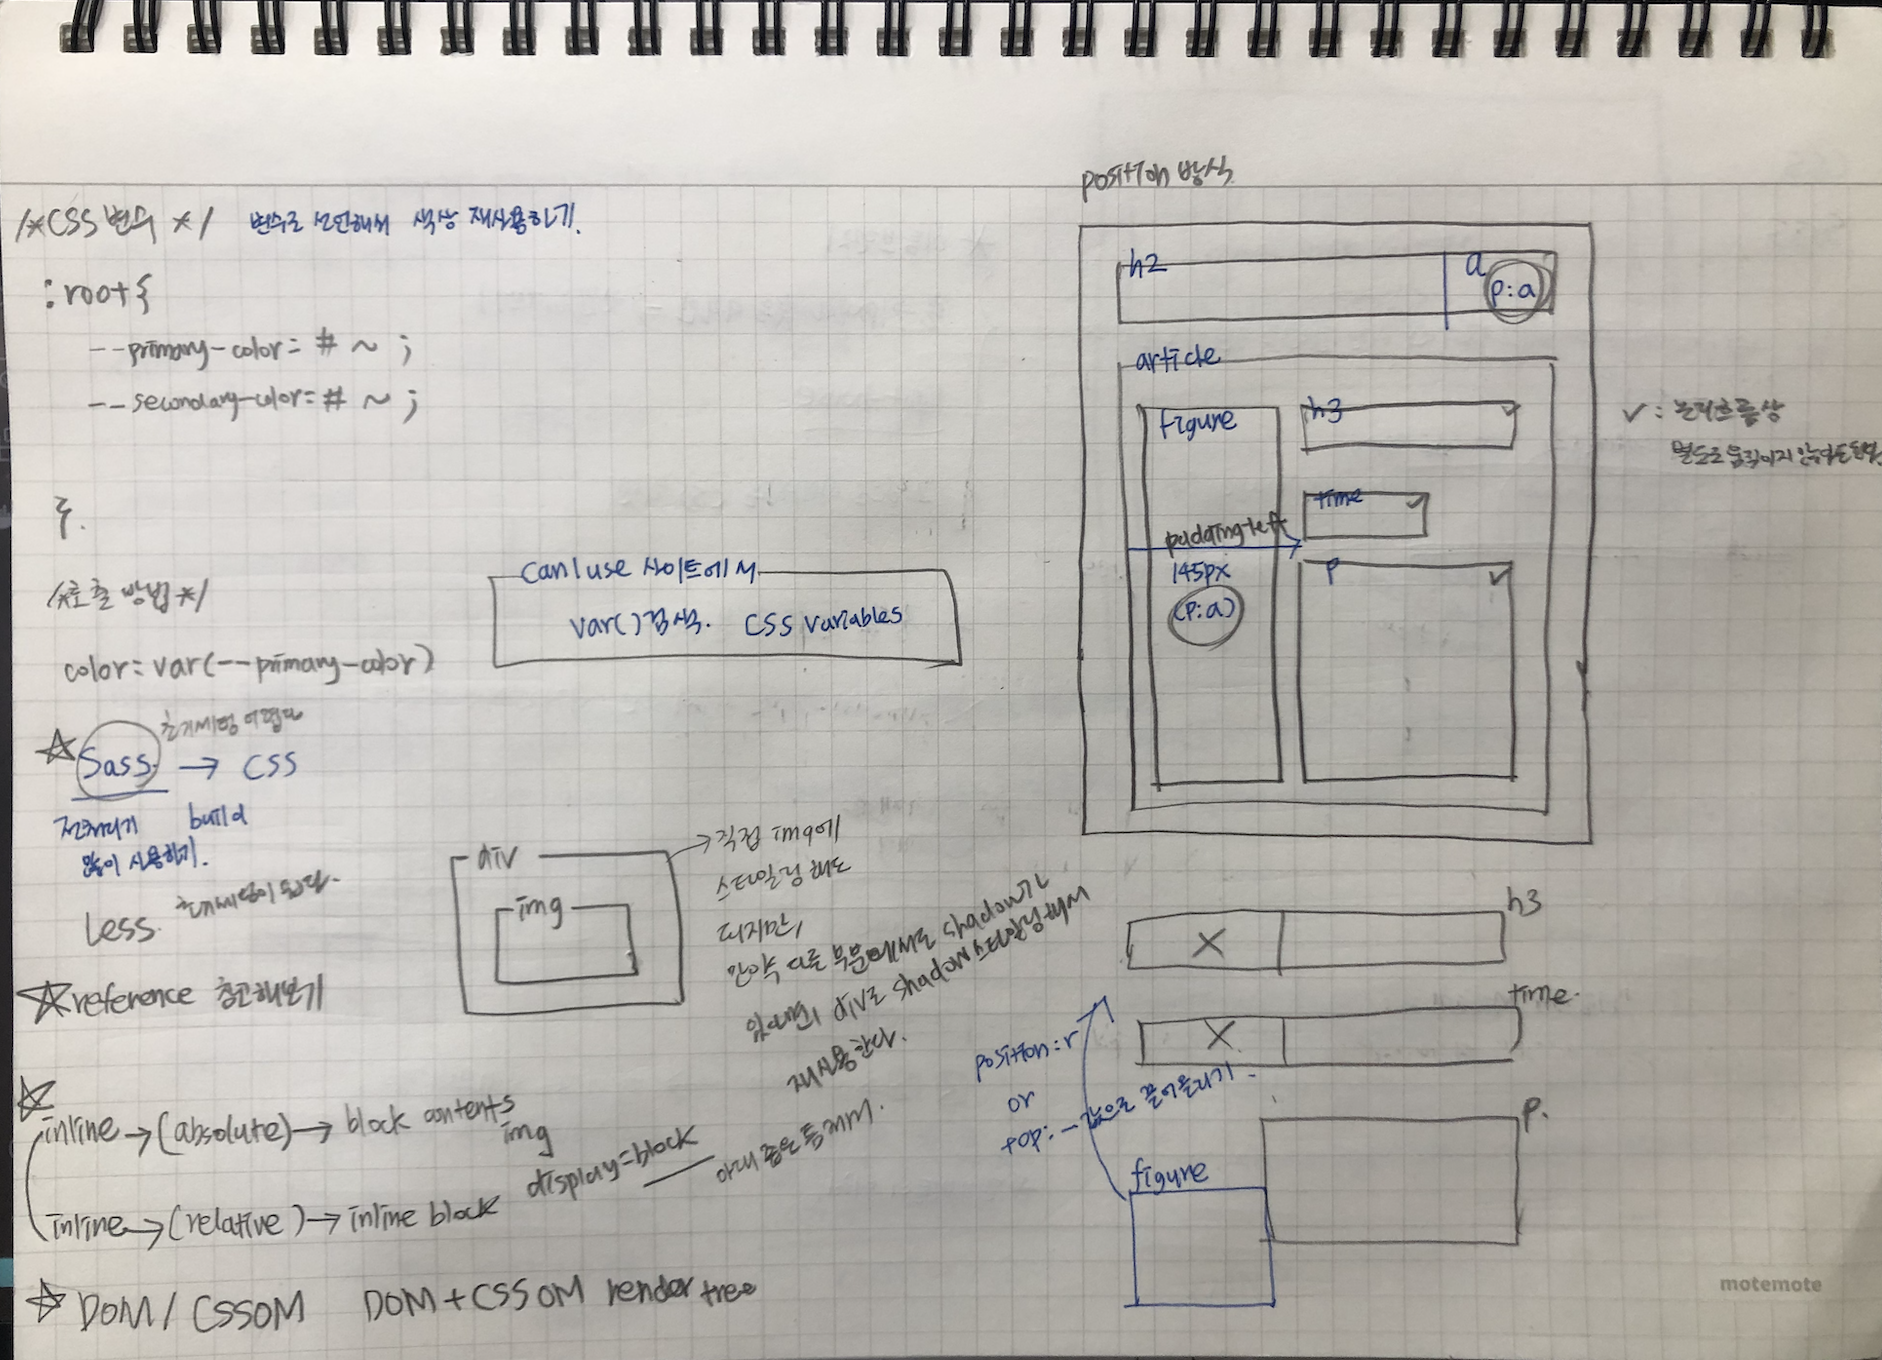 /*CSS 변수 */ 변수로 선언해서 색상 재사용하기.
:root{
--primary-color= # ~ ;
--secondary-color= # ~ ;
}.
/*호출 방법*/
color=var(--primary-color)
caniuse 사이트에서
var()검색. CSS variables
초기세팅 어렵다
Sass → CSS
전처리기 build
많이 사용하기.
Less. 초기세팅이 쉽다.
reference 참고해보기
div
img
→직접 img에
스타일링 해도
되지만,
만약 다른 부분에서도 shadow가
있다면 div로 shadow스타일링해서
재사용한다.
inline→(absolute)→ block contents
img
display=block
inline→(relative)→ inline block
DOM / CSSOM DOM+CSSOM render tree
position 방식
h2
a
p:a
article
figure
h3
time
padding-left
145px
(p:a)
p
✓: 논리흐름상
별도로 움직이지 않아도
h3
X
time.
X
p.
position:r
or
top: -값으로 끌어올리기.
figure
motemote